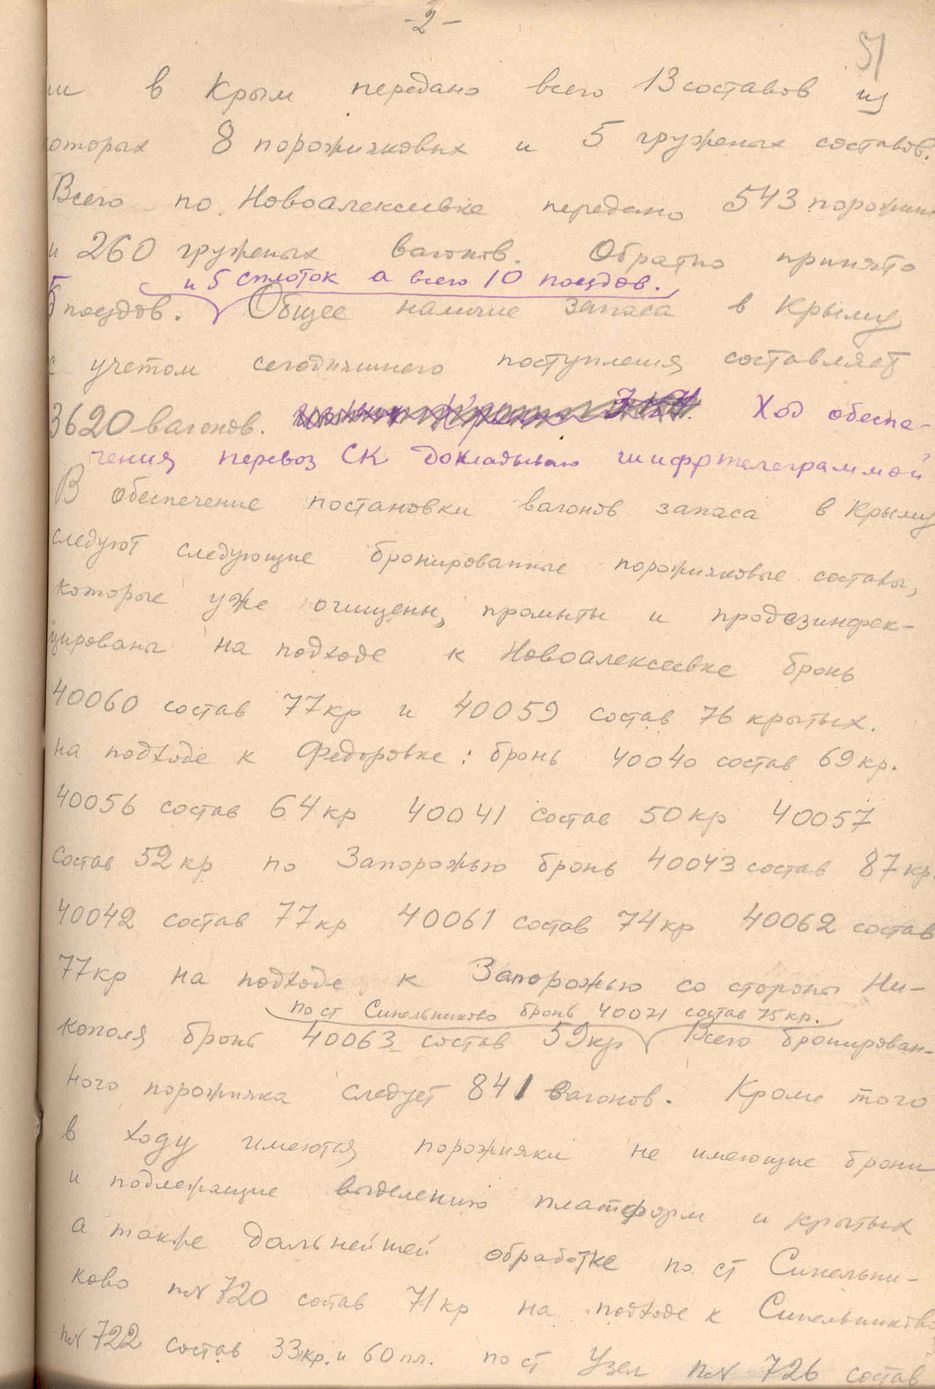 -2-
51
в Крым передано всего 13 составов из
которых 8 порожняковых и 5 груженых составов.
Всего по Новоалексеевке передано 543 порожних
и 260 груженых вагонов. Обратно принято
и 5 сплоток а всего 10 поездов.
5 поездов. Общее наличие запаса в Крыму
с учетом сегодняшнего поступления составляет
3620 вагонов. Ход обеспе-
чения перевоз СК докладываю шифртелеграммой
В обеспечение постановки вагонов запаса в Крыму
следуют следующие бронированные порожняковые составы,
которые уже очищены, промыты и продезинфек-
цированы на подходе к Новоалексеевке бронь
40060 состав 77 кр и 40059 состав 76 крытых.
на подходе к Федоровке: бронь 40040 состав 69 кр.
40056 состав 64 кр 40041 состав 50 кр 40057
состав 52 кр по Запорожью бронь 40043 состав 87 кр.
40042 состав 77 кр 40061 состав 74 кр 40062 состав
77 кр на подходе к Запорожью со стороны Ни-
по ст Синельниково бронь 40071 состав 75 кр.
кополя бронь 40063 состав 59 кр Всего бронирован-
ного порожняка следует 841 вагонов. Кроме того
в ходу имеются порожняки не имеющие брони
и подлежащие выделению платформ и крытых
а также дальнейшей обработке по ст Синельни-
ково п№ 720 состав 71 кр на подходе к Синельниково
п№ 722 состав 33 кр. и 60 пл. по ст Узел п№ 726 состав